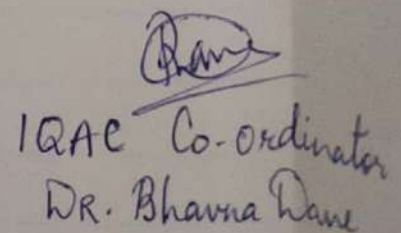 IQAC Co-ordinator
DR. Bhavna Dave